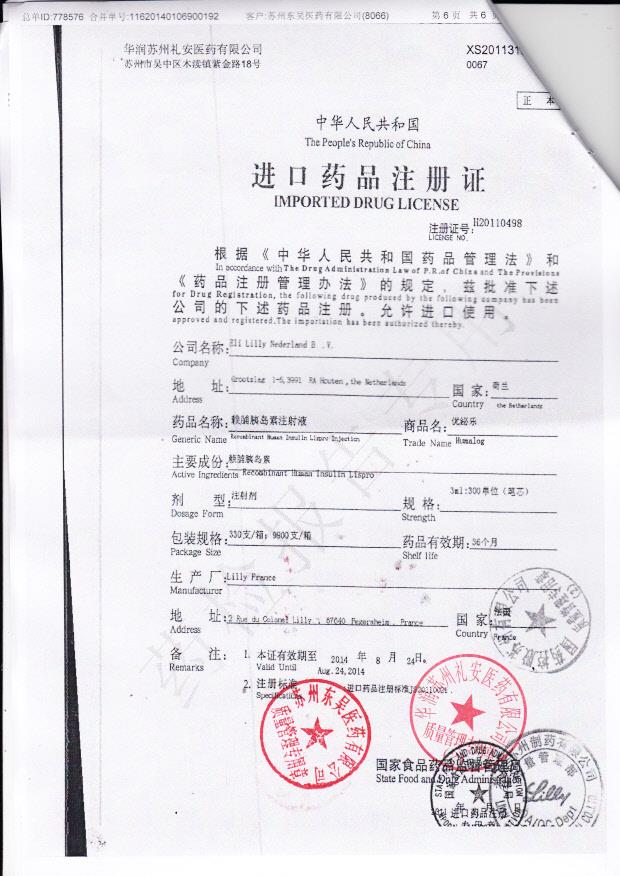 总单ID:778576 合并单号:11620140106900192 客户:苏州东吴医药有限公司(8066) 第 6 页 共 6
华润苏州礼安医药有限公司
苏州市吴中区木渎镇紫金路18号
XS201131
0067
正 本
中华人民共和国
The People's Republic of China
进口药品注册证
IMPORTED DRUG LICENSE
注册证号: H20110498
LICENSE NO.
根据《中华人民共和国药品管理法》和
In accordance with The Drug Administration Law of P.R.of China and The Provisions
《药品注册管理办法》的规定,兹批准下述
for Drug Registration, the following drug produced by the following company has been
公司的下述药品注册。允许进口使用。
approved and registered.The importation has been authorized thereby.
公司名称: Eli Lilly Nederland B .V.
Company
地 址: Grootslag 1-5,3991 RA Houten,the Netherlands 国家: 荷兰
Address Country the Netherlands
药品名称: 赖脯胰岛素注射液 商品名: 优泌乐
Generic Name Recombinant Human Insulin Lispro Injection Trade Name Humalog
主要成份: 赖脯胰岛素
Active Ingredients Recombinant Human Insulin Lispro
剂 型: 注射剂 规 格: 3ml:300单位(笔芯)
Dosage Form Strength
包装规格: 330支/箱;9900支/箱 药品有效期: 36个月
Package Size Shelf life
生 产 厂: Lilly France
Manufacturer
地 址: 2 Rue du Colonel Lilly , 67640 Fegersheim, France 国家: 法国
Address Country France
备 注: 1. 本证有效期至 2014 年 8 月 24日。
Remarks Valid Until Aug.24,2014
2. 注册标准
Specifications
进口药品注册标准JS20110021.
苏州东吴医药有限公司
华润苏州礼安医药有限公司
国家食品药品监督管理局
State Food and Drug Administration
年 月 日
进口药品注册
Lilly
药检报告专用